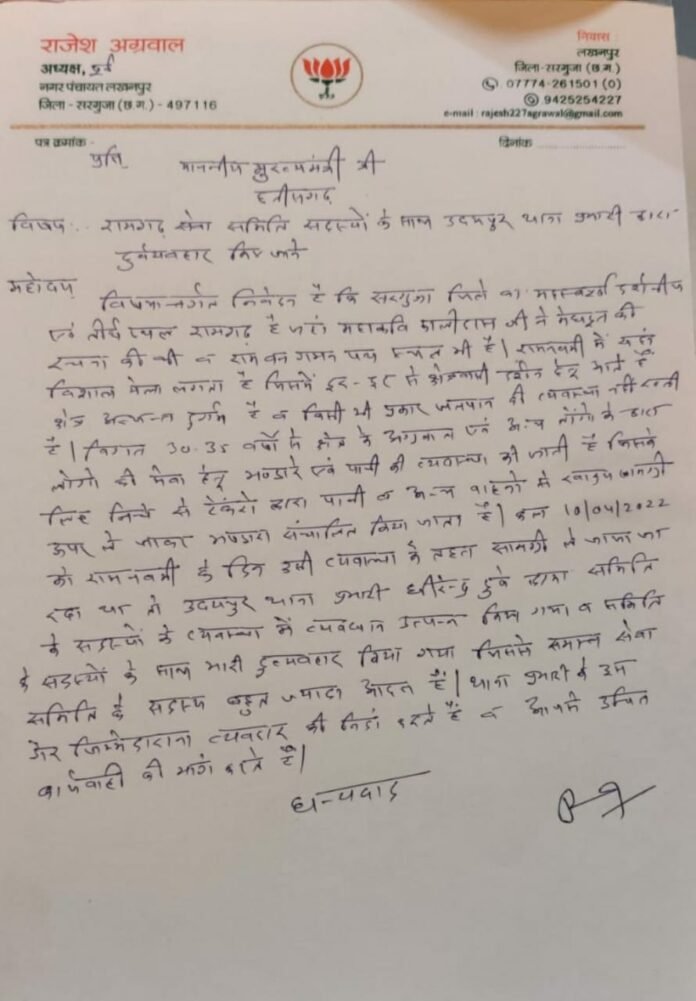 राजेश अग्रवाल
अध्यक्ष, पूर्व
नगर पंचायत लखनपुर
जिला - सरगुजा (छ.ग.) - 497116
निवास :
लखनपुर
जिला-सरगुजा (छ.ग.)
07774-261501 (O)
9425254227
e-mail : rajesh227agrawal@gmail.com
पत्र क्रमांक -
दिनांक
प्रति
माननीय मुख्यमंत्री श्री
छत्तीसगढ़
विषय :. रामगढ़ सेवा समिति सदस्यों के साथ उदयपुर थाना प्रभारी द्वारा
दुर्व्यवहार किए जाने
महोदय
विषयान्तर्गत निवेदन है कि सरगुजा जिले का महत्वपूर्ण दर्शनीय
एवं तीर्थ स्थल रामगढ़ है जहां महाकवि कालीदास जी ने मेघदूत की
रचना की थी व राम वन गमन पथ स्थल भी है। रामनवमी में यहां
विशाल मेला लगता है जिसमें दूर-दूर से क्षेत्रवासी दर्शन हेतु आते हैं
क्षेत्र अत्यन्त दुर्गम है व किसी भी प्रकार जलपान की व्यवस्था नहीं रहती
है। विगत 30-35 वर्षों से क्षेत्र के अग्रवाल एवं अन्य लोगों के द्वारा
लोगो की सेवा हेतू भण्डारे एवं पानी की व्यवस्था की जाती है जिसके
लिए निचे से टेंकरो द्वारा पानी व अन्य वाहनो से खाद्य सामग्री
ऊपर ले जाकर भण्डारा संचालित किया जाता है। कल 10/04/2022
को रामनवमी के दिन उसी व्यवस्था के तहत सामग्री ले जाया जा
रहा था तो उदयपुर थाना प्रभारी धीरेन्द्र दुबे द्वारा समिति
के सदस्यों के व्यवस्था में व्यवधान उत्पन्न किया गया व समिति
के सदस्यों के साथ भारी दुव्यवहार किया गया जिससे समाज सेवा
समिति के सदस्य बहुत ज्यादा आहत हैं। थाना प्रभारी के इस
गैर जिम्मेदाराना व्यवहार की निंदा करते हैं व आपसे उचित
कार्यवाही की मांग करते हैं।
धन्यवाद